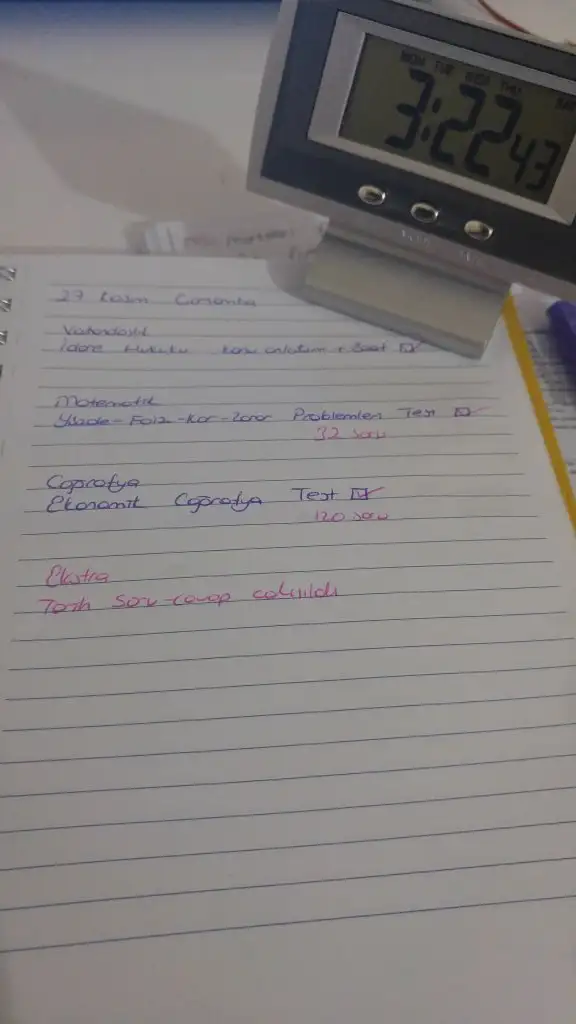 MON TUE WED THU SAT
3:22 43
27 Kasım Çarşamba
Vatandaşlık
İdare Hukuku konu anlatım + Saat
Matematik
Yüzde-Faiz-Kar-Zarar Problemleri Test
32 soru
Coğrafya
Ekonomik Coğrafya Test
120 soru
Ekstra
Tarih Soru-cevap çalışıldı